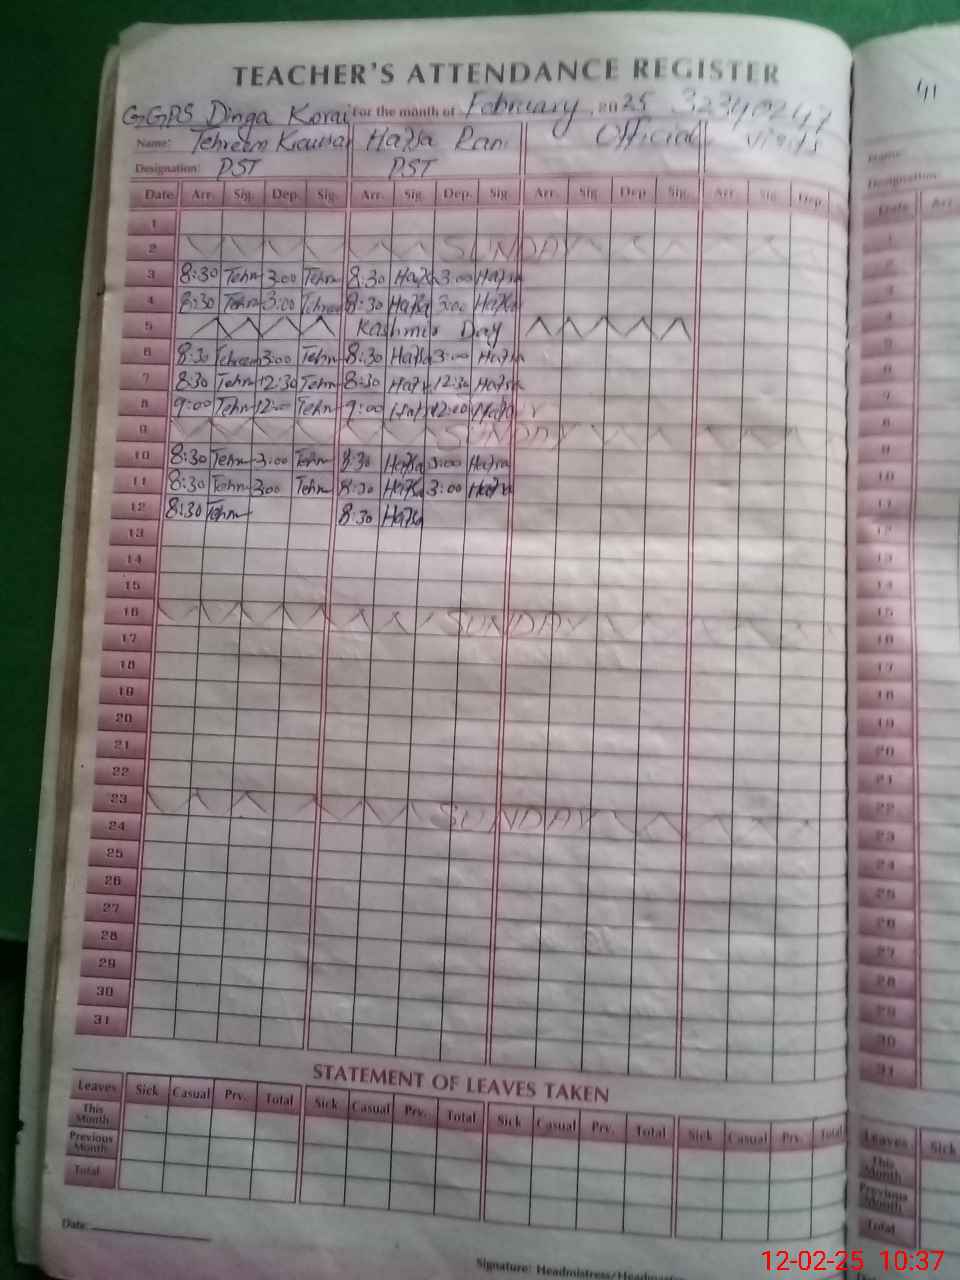 TEACHER'S ATTENDANCE REGISTER
G.GPS Dinga Korai For the month of February. 2025 32340247
Name: Tehreem Kausar Hafsa Rani Official visits
Designation: PST PST
Date Arr. Sig. Dep. Sig. Arr. Sig. Dep. Sig. Arr. Sig. Dep. Sig. Arr. Sig. Dep.
1
2 SUNDAY
3 8:30 Tehr 3:00 Tehr 8:30 Hafsa 3:00 Hafsa
4 8:30 Tehr 3:00 Tehree 8:30 Hafsa 3:00 Hafsa
5 Kashmir Day
6 8:30 Tehreem 3:00 Tehr 8:30 Hafsa 3:00 Hafsa
7 8:30 Tehr 12:30 Tehr 8:30 Hafsa 12:30 Hafsa
8 9:00 Tehr 12:00 Tehr 9:00 Hafsa 12:00 Hafsa
9 SUNDAY
10 8:30 Tehr 3:00 Tehr 8:30 Hafsa 3:00 Hafsa
11 8:30 Tehr 3:00 Tehr 8:30 Hafsa 3:00 Hafsa
12 8:30 Tehr 8:30 Hafsa
13
14
15
16 SUNDAY
17
18
19
20
21
22
23 SUNDAY
24
25
26
27
28
29
30
31
STATEMENT OF LEAVES TAKEN
Leaves Sick Casual Prv. Total Sick Casual Prv. Total Sick Casual Prv. Total Sick Casual Prv. Total
This Month
Previous Month
Total
Date:
Signature: Headmistress/Headmaster
41
Name:
Designation:
Date Arr
1
2
3
4
5
6
7
8
9
10
11
12
13
14
15
16
17
18
19
20
21
22
23
24
25
26
27
28
29
30
31
Leaves Sick
This Month
Previous Month
Total
12-02-25 10:37